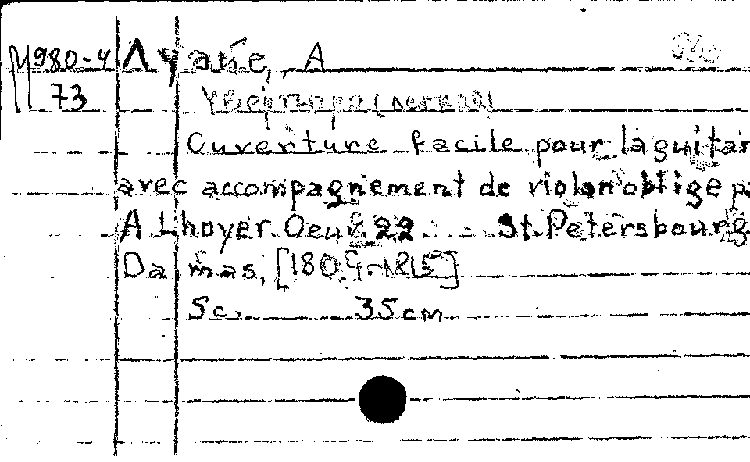 М980-4 Луайе, А
73 Увертюра (легкая)
Ouverture facile pour la guitar
avec accompagnement de violon oblige p
A Lhoyer. Oeu 22 St. Petersbourg
Dalmas, [1805-1815]
Sc. 35 cm